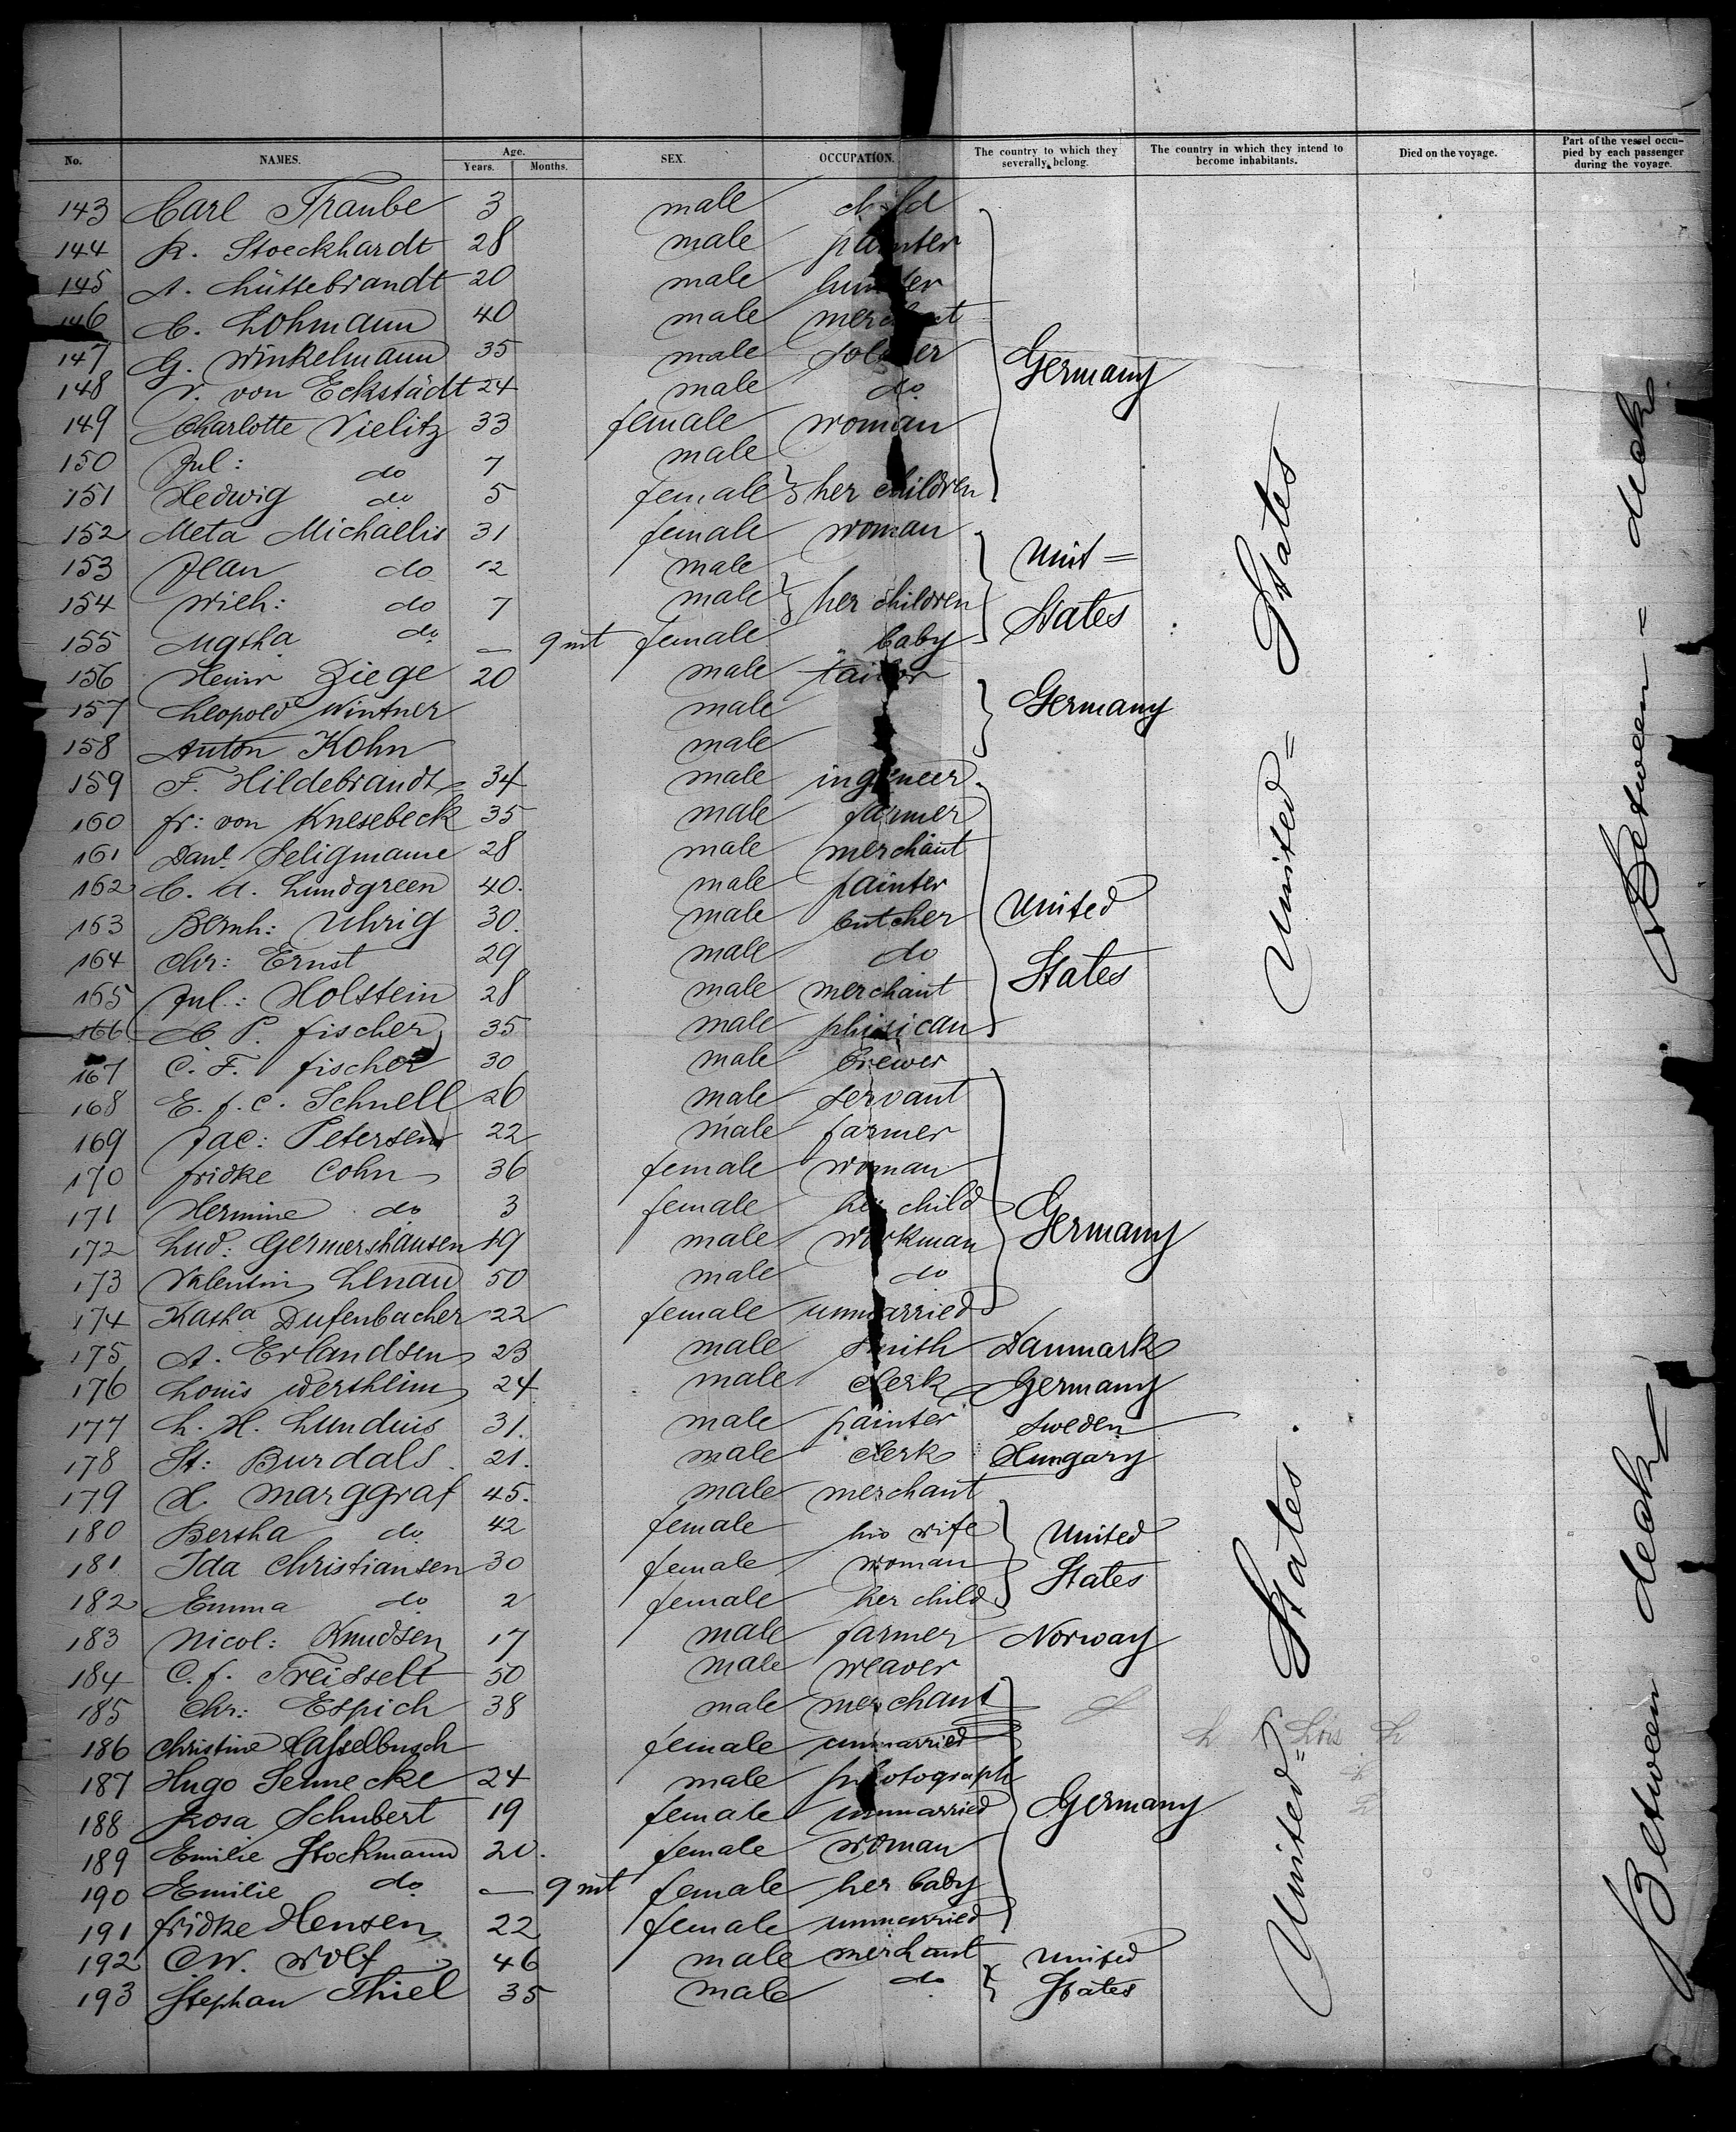 No. NAMES. Age. Years. Months. SEX. OCCUPATION. The country to which they severally belong. The country in which they intend to become inhabitants. Died on the voyage. Part of the vessel occu-pied by each passenger during the voyage.
143 Carl Traube 3 male child
144 R. Stoeckhardt 28 male painter
145 A. Lüttebrandt 20 male hunter
146 C. Lohmann 40 male merchant
147 G. Winkelmann 35 male soldier Germany
148 V. von Eckstädt 24 male do
149 Charlotte Vielitz 33 female woman
150 Jul: do 7 male
151 Hedwig do 5 female her children
152 Meta Michaelis 31 female woman
153 Jean do 12 male Unit=
154 Wilh: do 7 male her children States
155 do — 9 mt female baby
156 Heinr Ziege 20 male tailor
157 Leopold Wintner male Germany
158 Anton Kohn male
159 F. Hildebrandt 34 male ingeneer
160 Fr: von Knesebeck 35 male farmer
161 Danl Seligmann 28 male merchant
162 C. A. Lundgreen 40. male painter
163 Bernh: Uhrig 30. male butcher United
164 Chr: Ernst 29 male do
165 Jul: Holstein 28 male merchant States
166 C P. Fischer 35 male phisican
167 C. F. Fischer 30 male brewer
168 E. F. C. Schnell 26 male servant
169 Jac: Petersen 22 male farmer
170 Fridke Cohn 36 female woman
171 Hermine do 3 female her child
172 Lud: Germershausen 19 male workman Germany
173 Valentin Lenau 50 male do
174 Katha Dufenbacher 22 female unmarried
175 A. Erlandsen 23 male smith Danmark
176 Louis Wershlim 24 male clerk Germany
177 L. H. Lunduis 31. male painter Sweden
178 St: Burdals. 21. male clerk Hungary
179 H. Marggraf 45. male merchant
180 Bertha do 42 female his wife United
181 Ida Christiansen 30 female woman States
182 Emma do 2 female her child
183 Nicol: Knudsen 17 male farmer Norway
184 C. F. Treisselt 50 male weaver
185 Chr: Espich 38 male merchant
186 Christine Hasselbusch female unmarried
187 Hugo Sennecke 24 male photograph
188 Rosa Schubert 19 female unmarried Germany
189 Emilie Stockmann 20. female woman
190 Emilie do — 9 mt female her baby
191 Fridke Hensen 22 female unmarried
192 C. W. Wolf 46 male merchant United
193 Stephan Thiel 35 male do States
United= States
United= States.
Between= deck
Between deck